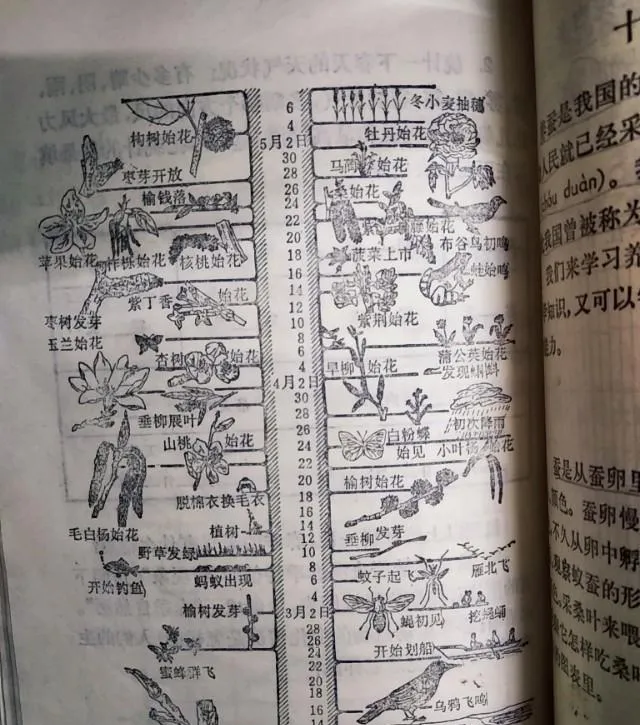 6
冬小麦抽穗
4
构树始花
5月2日
牡丹始花
30
马蔺始花
枣芽开放
28
榆钱落
26
始花
24
22
苹果始花
柞栎始花
核桃始花
20
布谷鸟初鸣
18
菠菜上市
蛙始鸣
16
14
紫丁香
始花
12
枣树发芽
10
紫荆始花
玉兰始花
8
蒲公英始花
6
杏树
始花
旱柳
始花
发现蝌蚪
4
4月2日
30
垂柳展叶
28
初次降雨
26
白粉蝶
始见
小叶杨始花
山桃
始花
24
22
20
榆树始花
脱棉衣换毛衣
18
16
植树
14
毛白杨始花
12
垂柳发芽
野草发绿
10
8
雁北飞
开始钓鱼
蚂蚁出现
6
蚊子起飞
4
榆树发芽
3月2日
蝇初见
挖蝇蛹
28
26
开始划船
24
蜜蜂群飞
22
20
18
乌鸦飞鸣
16
14
十
蚕是我国的
人民就已经采
chóu duàn)。
我国曾被称为
我们来学习养
知识,又可以
能力。
蚕是从蚕卵里
颜色。蚕卵慢
不久从卵中孵
观察蚁蚕的形
采桑叶来喂
它怎样吃桑叶